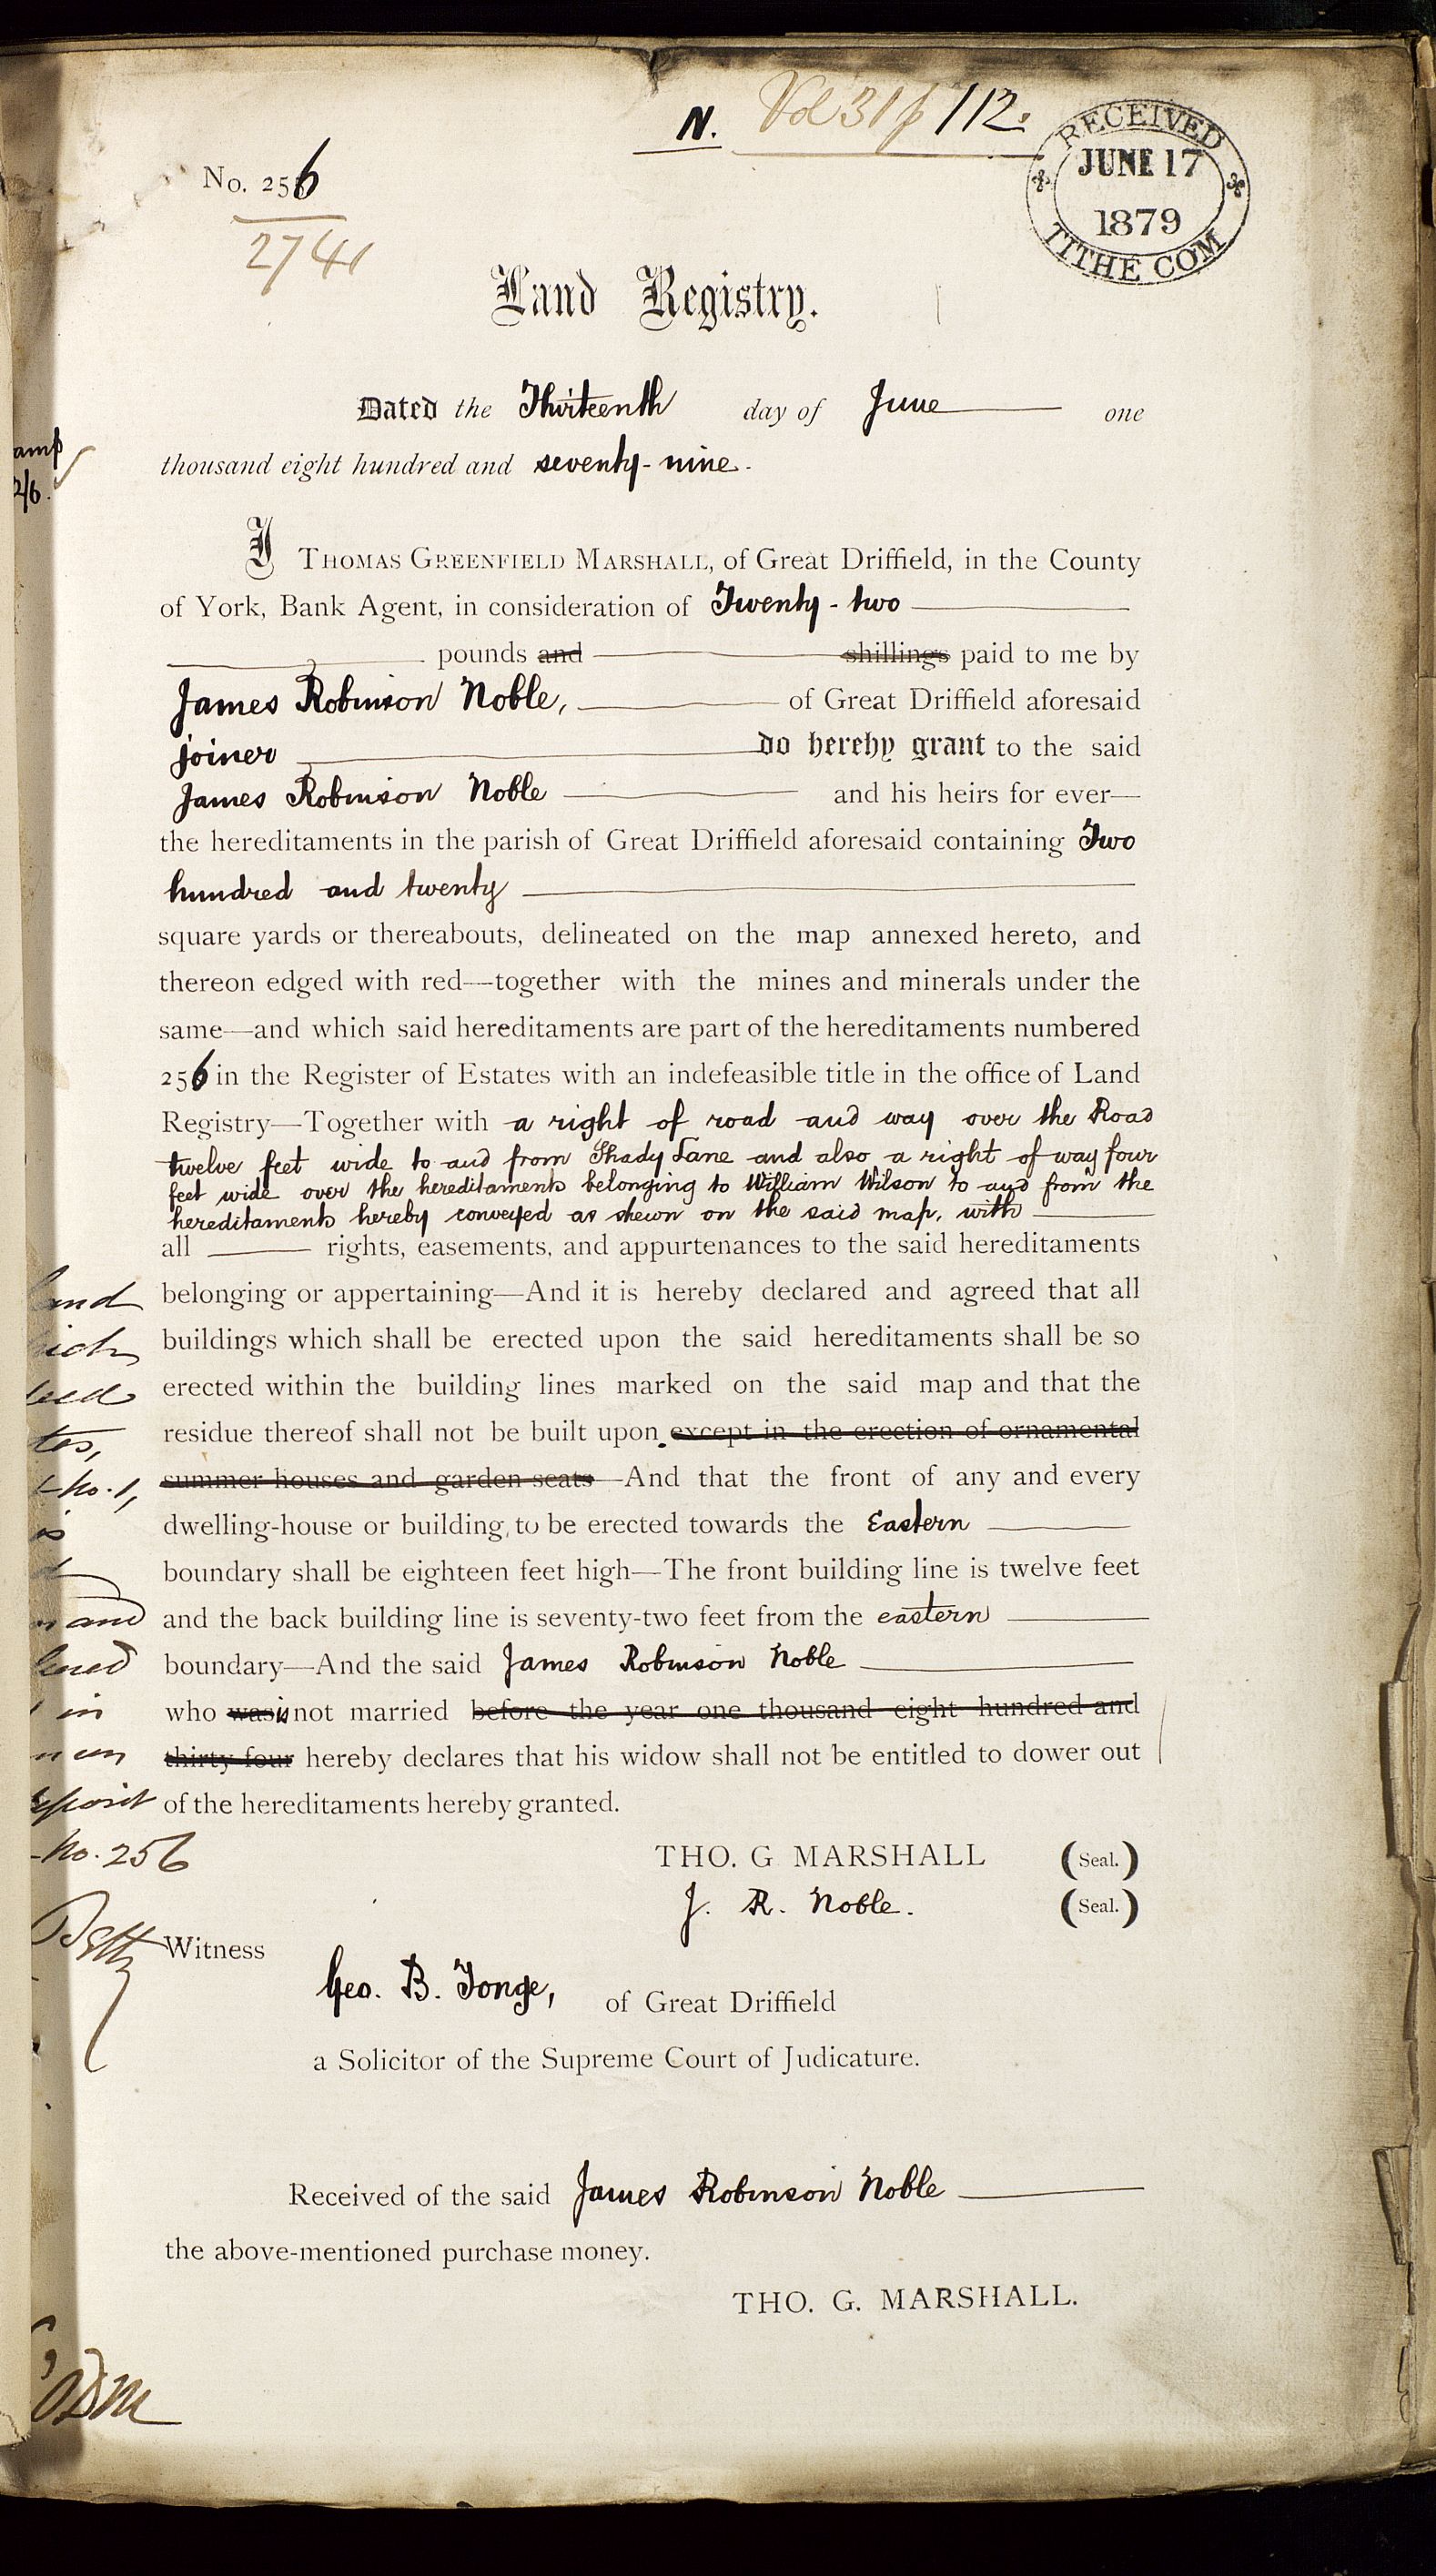 N. Vol 31 p 112.
RECEIVED
JUNE 17
1879
TITHE COM
No. 256
2741
Land Registry.
Dated the Thirteenth day of June one
thousand eight hundred and seventy-nine.
amp
2/6.
I THOMAS GREENFIELD MARSHALL, of Great Driffield, in the County
of York, Bank Agent, in consideration of Twenty-two
pounds and shillings paid to me by
James Robinson Noble, of Great Driffield aforesaid
joiner do hereby grant to the said
James Robinson Noble and his heirs for ever—
the hereditaments in the parish of Great Driffield aforesaid containing Two
hundred and twenty
square yards or thereabouts, delineated on the map annexed hereto, and
thereon edged with red—together with the mines and minerals under the
same—and which said hereditaments are part of the hereditaments numbered
256 in the Register of Estates with an indefeasible title in the office of Land
Registry—Together with a right of road and way over the Road
twelve feet wide to and from Shady Lane and also a right of way four
feet wide over the hereditaments belonging to William Wilson to and from the
hereditaments hereby conveyed as shewn on the said map, with
all rights, easements, and appurtenances to the said hereditaments
belonging or appertaining—And it is hereby declared and agreed that all
buildings which shall be erected upon the said hereditaments shall be so
erected within the building lines marked on the said map and that the
residue thereof shall not be built upon. except in the erection of ornamental
summer houses and garden seats—And that the front of any and every
dwelling-house or building, to be erected towards the Eastern
boundary shall be eighteen feet high—The front building line is twelve feet
and the back building line is seventy-two feet from the eastern
boundary—And the said James Robinson Noble
who was is not married before the year one thousand eight hundred and
thirty-four hereby declares that his widow shall not be entitled to dower out
of the hereditaments hereby granted.
No. 256
THO. G MARSHALL (Seal.)
J. R. Noble. (Seal.)
Witness
Geo. B. Tonge, of Great Driffield
a Solicitor of the Supreme Court of Judicature.
Received of the said James Robinson Noble
the above-mentioned purchase money.
THO. G. MARSHALL.